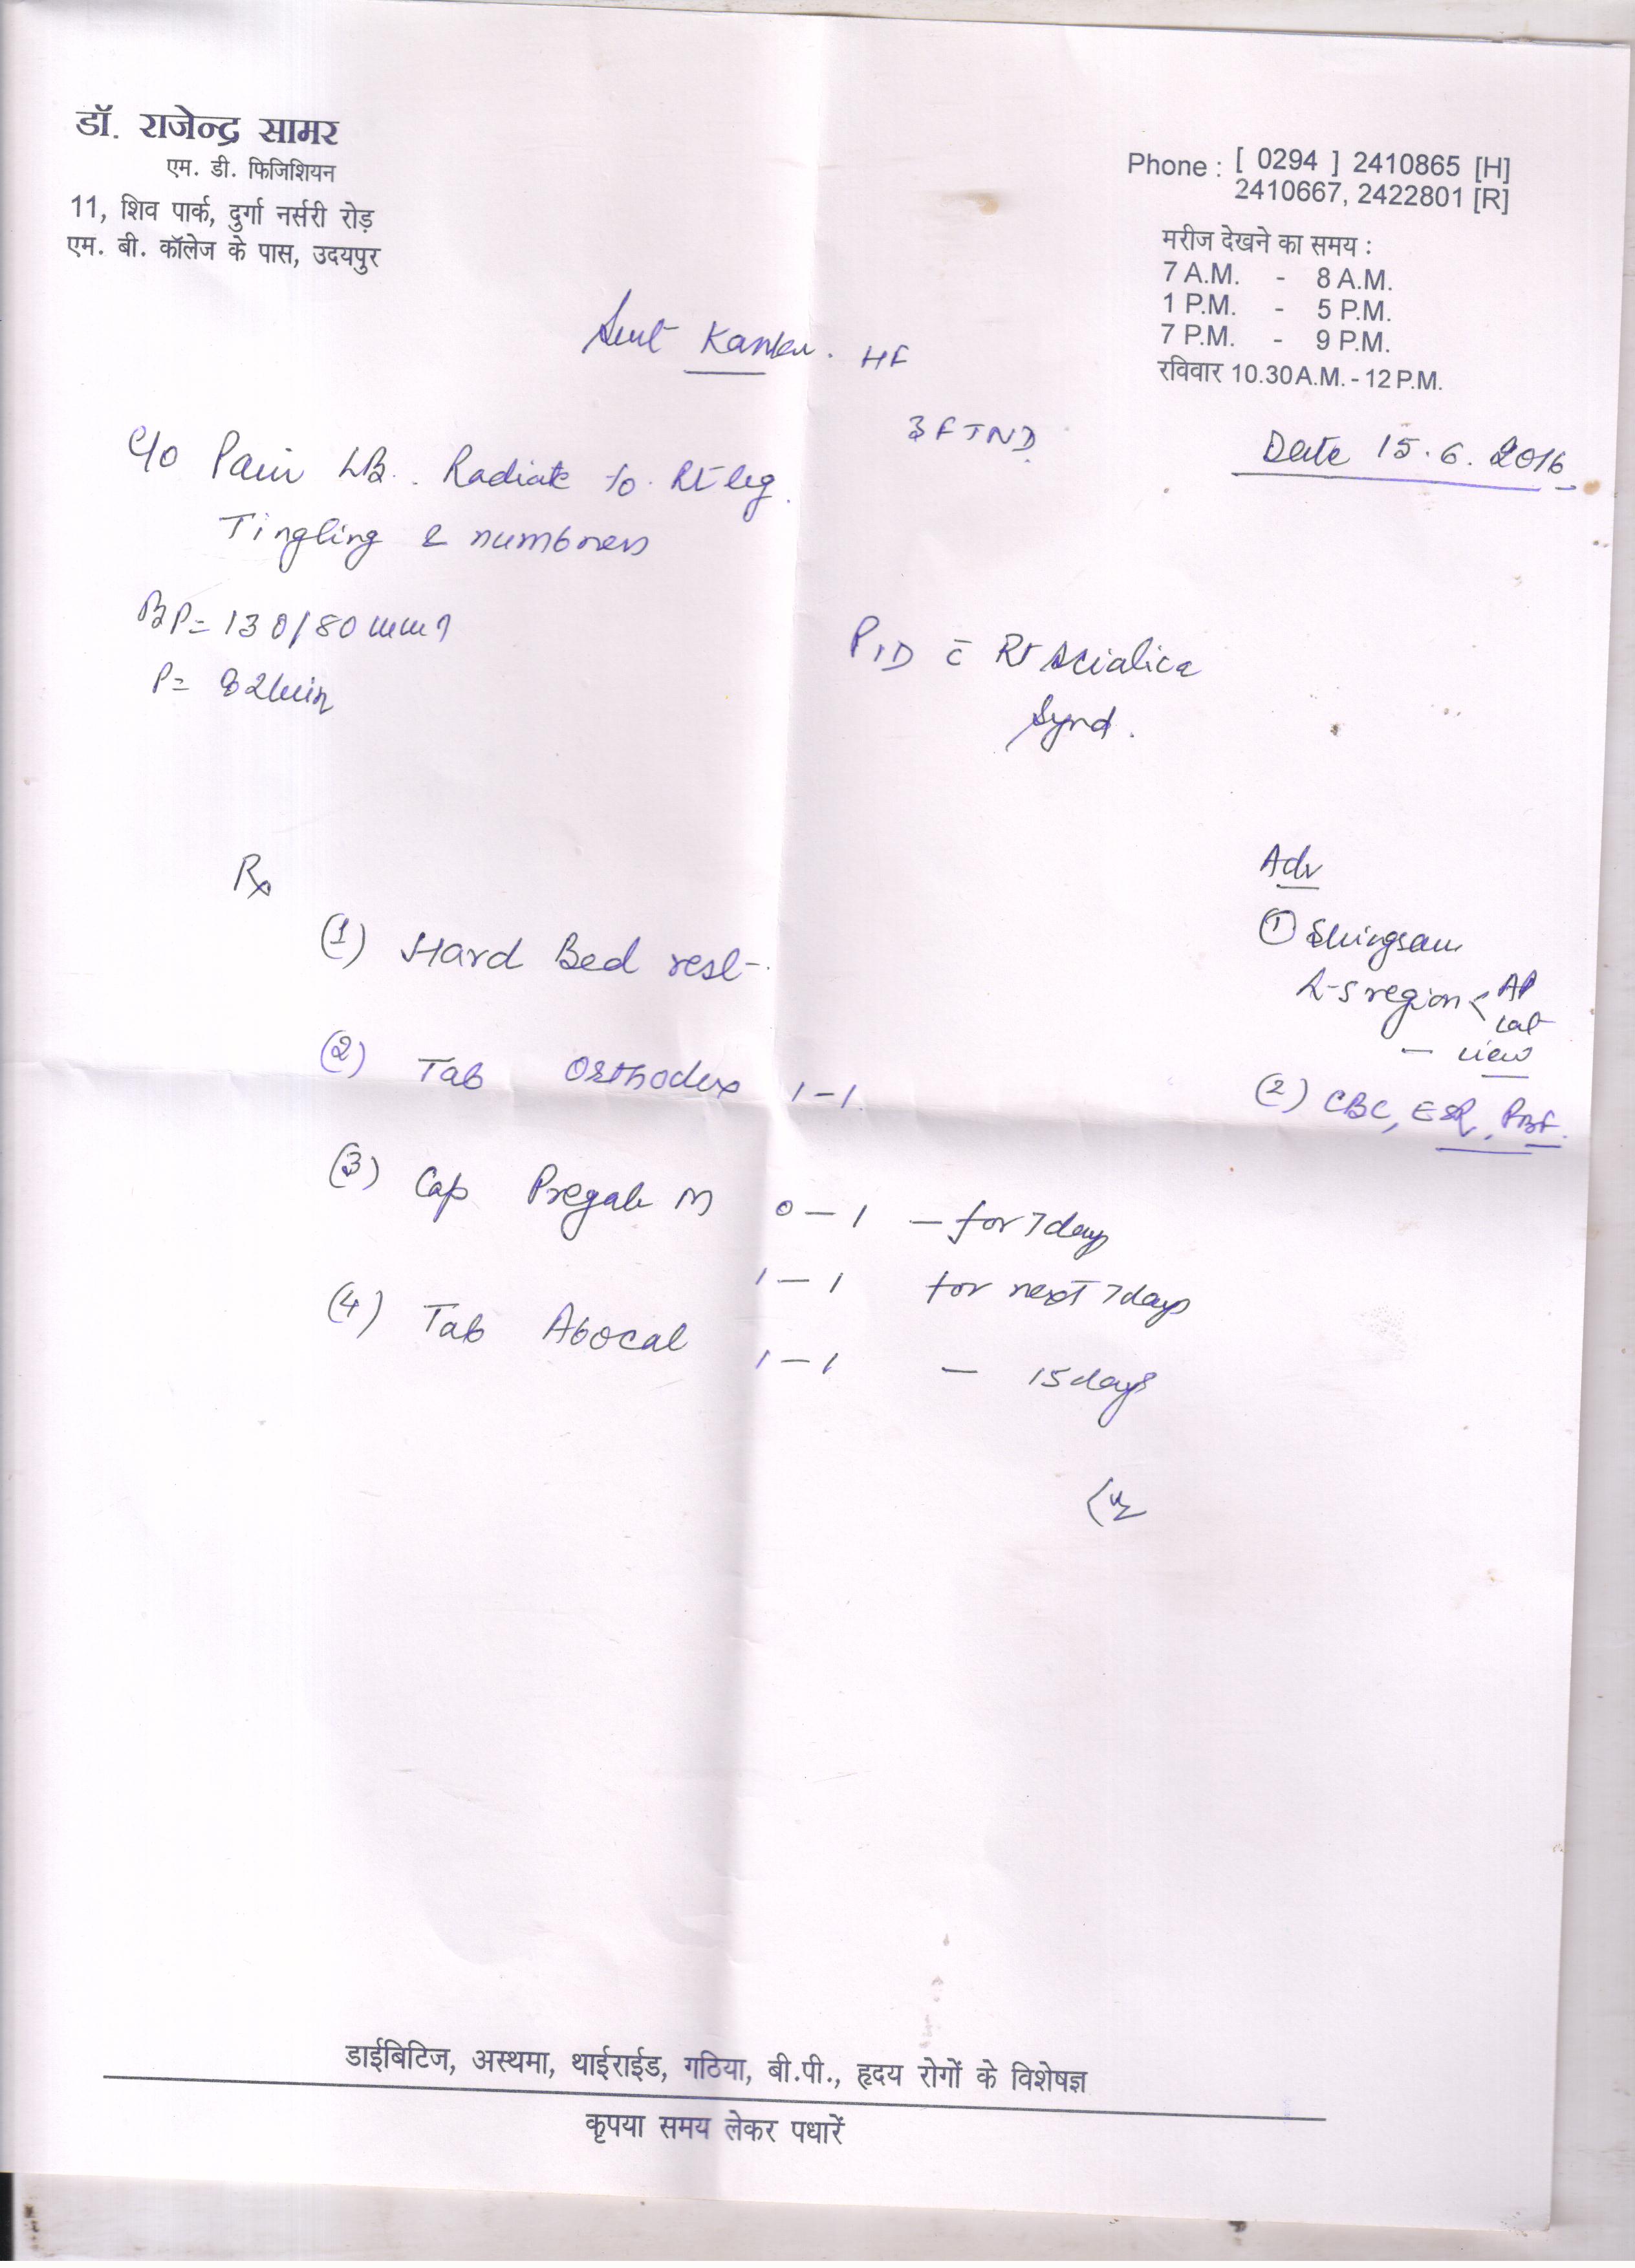 डॉ. राजेन्द्र सामर
एम. डी. फिजिशियन
11, शिव पार्क, दुर्गा नर्सरी रोड़
एम. बी. कॉलेज के पास, उदयपुर
Phone : [ 0294 ] 2410865 [H]
2410667, 2422801 [R]
मरीज देखने का समय :
7 A.M. - 8 A.M.
1 P.M. - 5 P.M.
7 P.M. - 9 P.M.
रविवार 10.30 A.M. - 12 P.M.
Smt Kanku. HF
3 FTND
Date 15.6.2016
C/o Pain LB. Radiate to Rt leg.
Tingling & numbness
BP= 130/80 mm
P= 82/min
PID c̄ Rt Sciatica
Synd.
Rx
(1) Hard Bed rest
(2) Tab Orthodex 1-1
(3) Cap Pregab M 0-1 - for 7 days
1-1 for next 7 days
(4) Tab Abocal 1-1 - 15 days
Adv
① 
L-S region < AP
Lat
- view
(2) CBC, ESR, PBF.
डाईबिटिज, अस्थमा, थाईराईड, गठिया, बी.पी., हृदय रोगों के विशेषज्ञ
कृपया समय लेकर पधारें